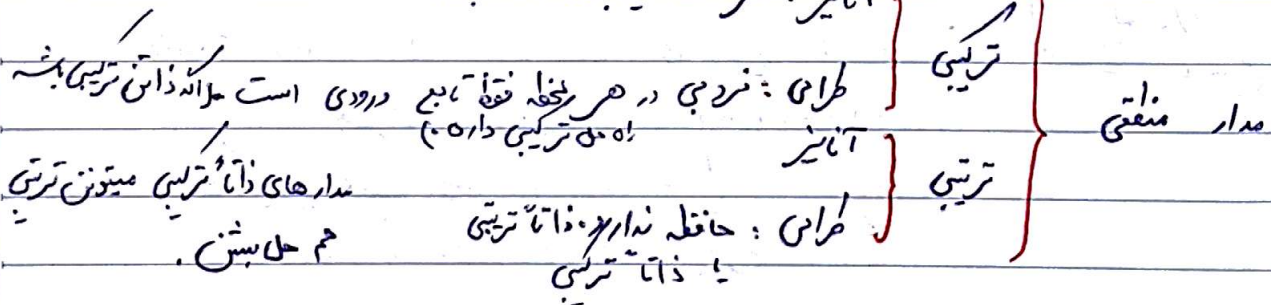 مدار منطقی
ترکیبی
طراحی : خروجی در هر لحظه فقط تابع ورودی است حل اگه ذاتن ترکیبی باشه
راه حل ترکیبی داره
ترتیبی
آنالیز
طراحی : حافظه نداره ذاتاً ترتیبی
یا ذاتاً ترکیبی
مدارهای ذاتاً ترکیبی میتونن ترتیبی
هم حل بشن .